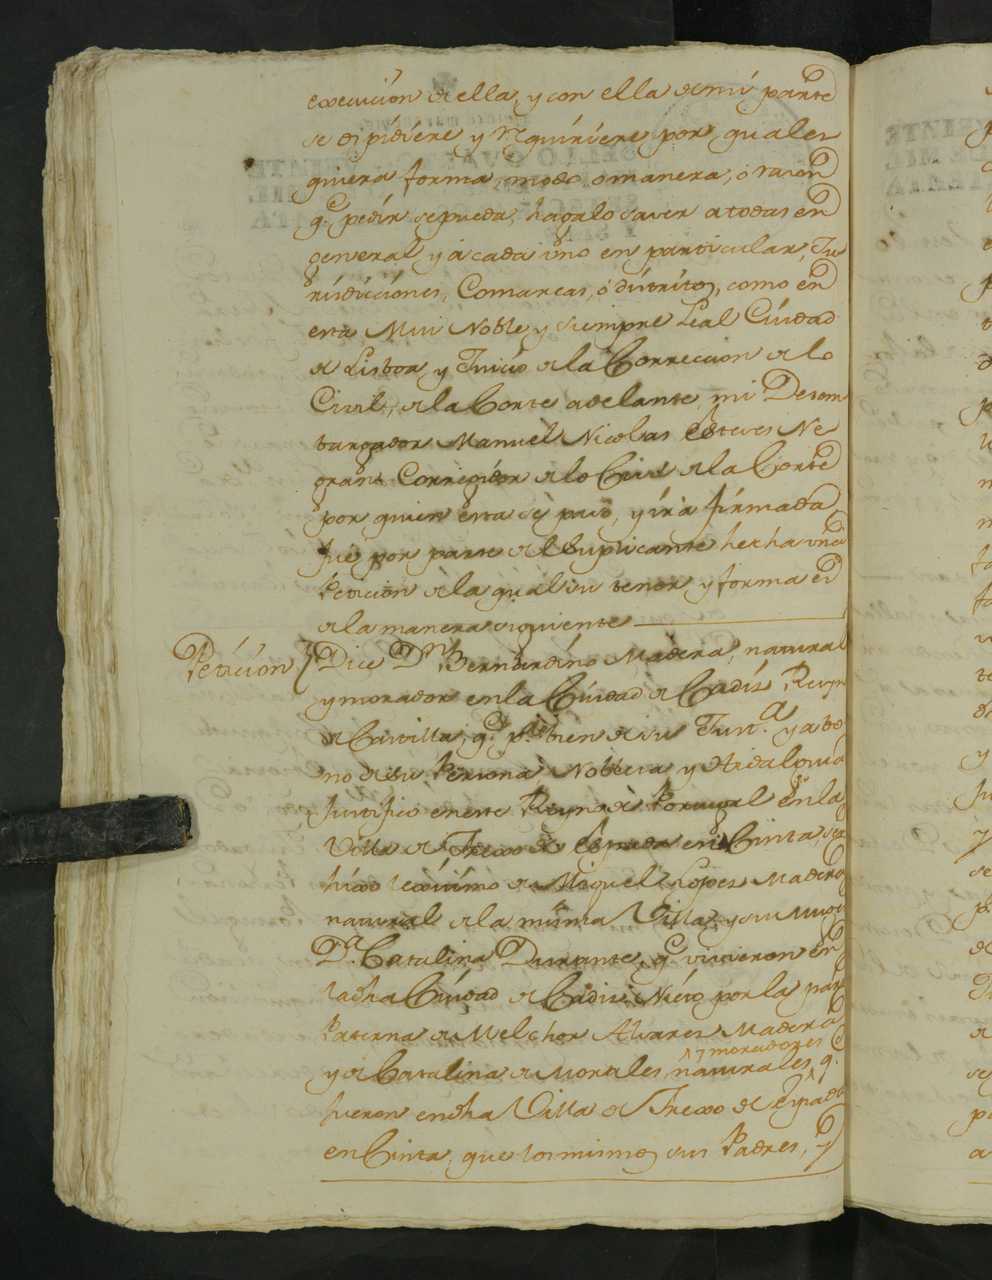 execucion de ella, y con ella de mi parte
se os pidiere y rq̃uiriere por quales
quiera forma, modo, o manera, o razon
q.e pedir sepueda, hagalo saver a todas en
general y à cada uno en particular, Ju
risdiciones, Comarcas, ó distritos, como en
esta Mui Noble y siempre Leal Ciudad
de Lisboa y Juicio de la Correccion de lo
Civil, de la Corte adelante mi Desem
bargador Manuel Nicolas Esteves Ne
grant Corregidor de lo Civil de la Corte
por quien esta se pasó, y irà firmada
fue por parte del Suplicante hecha una
Peticion de la qual su tenor y forma es
de la manera siguiente
Peticion Dice D.n Bernardino Madera, natural
y morador en la Ciudad de Cadis Reyno
de Castilla, q.e p.a bien de su Just.a y abo
no de su Persona, Nobleza y Hidalguia
justificò en este Reyno de Portugal en la
Villa de Frexo de Espada en Cinta, ser
hixo lexitimo de Miguel Lopes Madera
natural de la misma Villa, y su Muger
D.a Catalina Durante, q.e vivieron en
la dha Ciudad de Cadis: Nieto por la parte
Paterna de Melchor Alvares Madera
y moradores
y de Catalina de Morales naturales, q.e
fueron en dha Villa de Frexo de Espada
en Cinta, que los mismos sus Padres, y